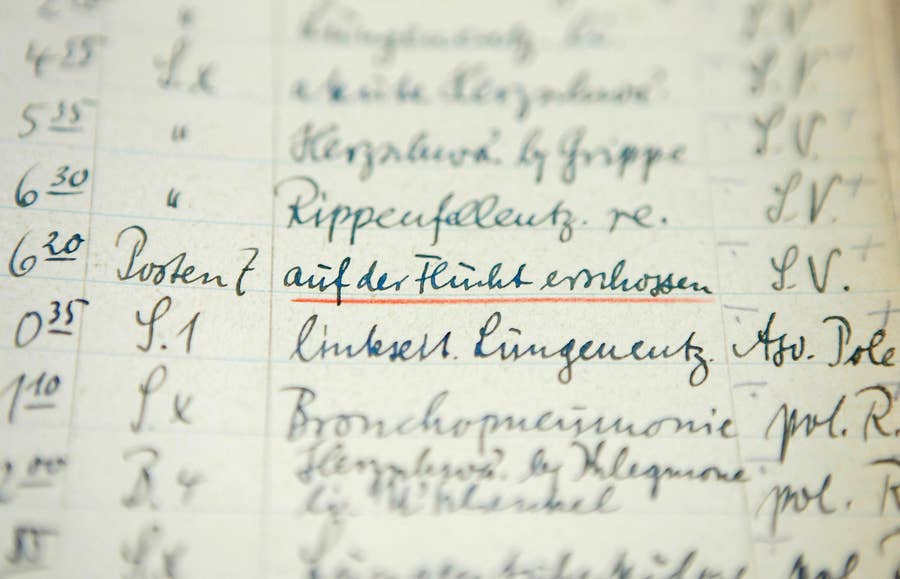 4 35 S. x akute Herzschwä. S.V.
5 35 " Herzschwä. by Grippe S.V.
6 30 " Rippenfellentz. re. S.V.
6 20 Posten 7 auf der Flucht erschossen S.V.
0 35 S.1 linkseit. Lungenentz. Aso. Pole
1 10 S. x Bronchopneumonie pol. R.
00 B. 4 Herzschwä. by Phlegmone pol. R